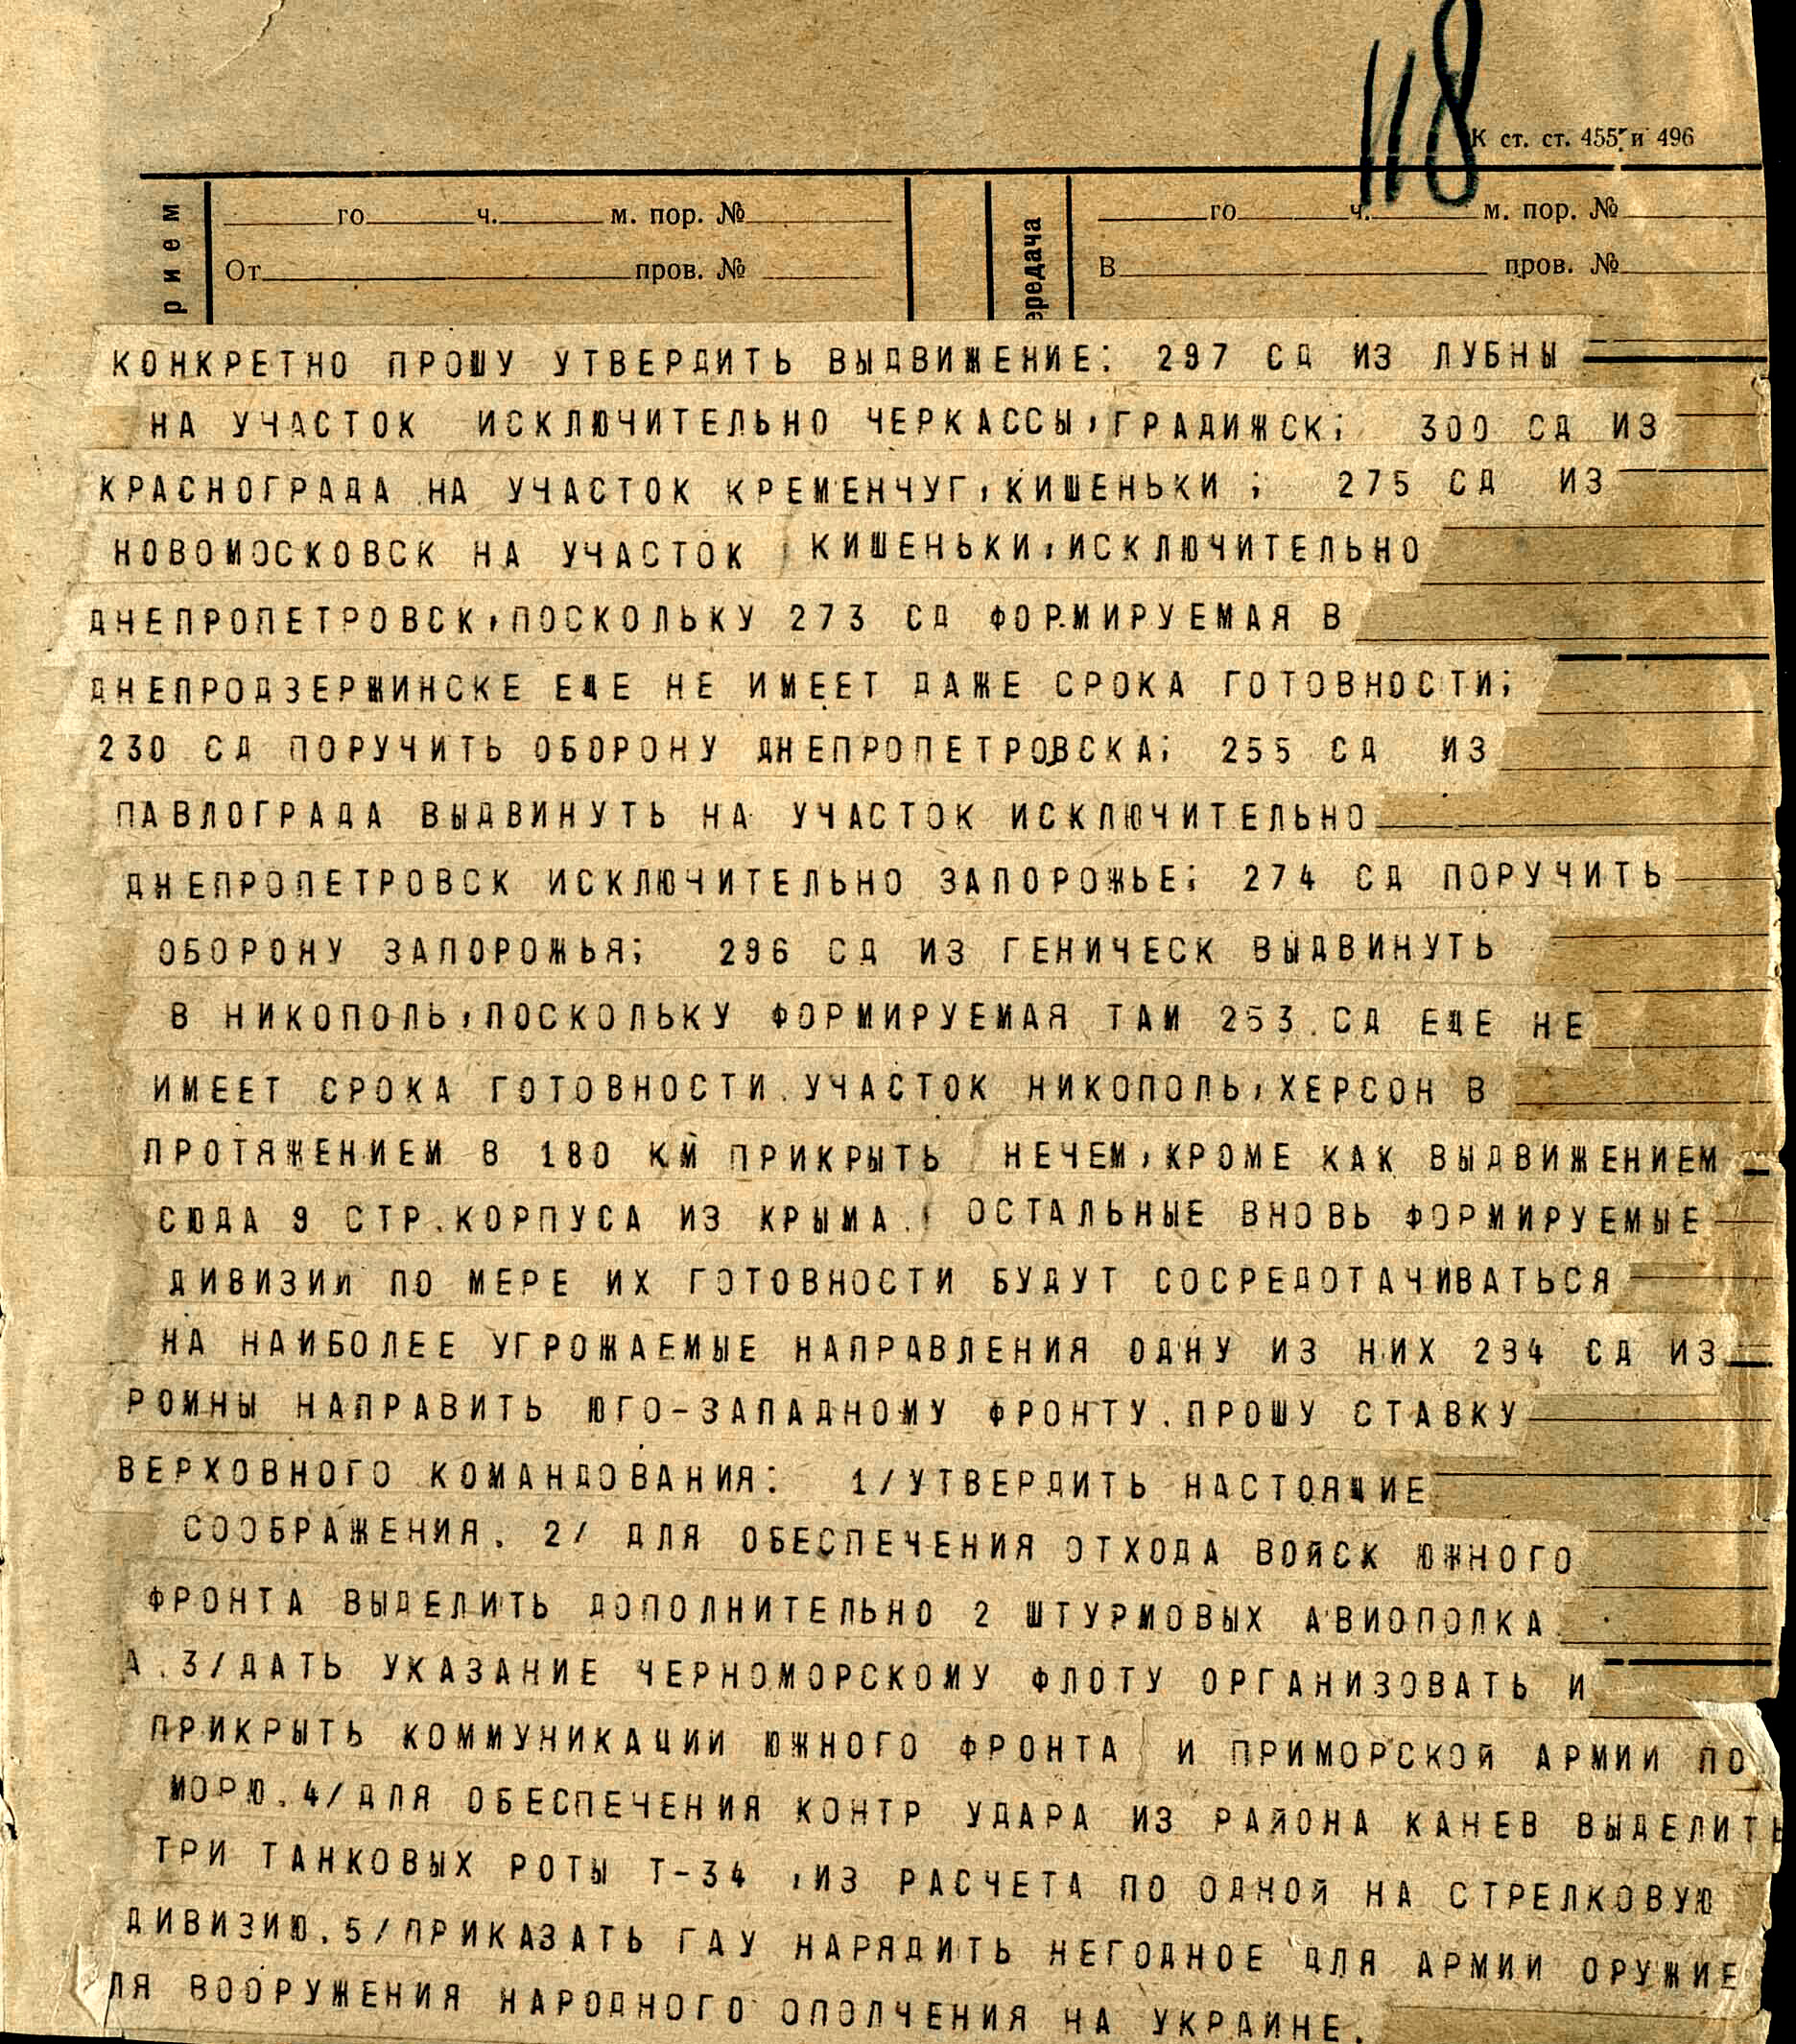 118
К ст. ст. 455 и 496
рием
го ч. м. пор. №
От пров. №
ередача
го ч. м. пор. №
В пров. №
КОНКРЕТНО ПРОШУ УТВЕРДИТЬ ВЫДВИЖЕНИЕ: 297 СД ИЗ ЛУБНЫ
НА УЧАСТОК ИСКЛЮЧИТЕЛЬНО ЧЕРКАССЫ,ГРАДИЖСК; 300 СД ИЗ
КРАСНОГРАДА НА УЧАСТОК КРЕМЕНЧУГ,КИШЕНЬКИ ; 275 СД ИЗ
НОВОМОСКОВСК НА УЧАСТОК КИШЕНЬКИ,ИСКЛЮЧИТЕЛЬНО
ДНЕПРОПЕТРОВСК,ПОСКОЛЬКУ 273 СД ФОРМИРУЕМАЯ В
ДНЕПРОДЗЕРЖИНСКЕ ЕЩЕ НЕ ИМЕЕТ ДАЖЕ СРОКА ГОТОВНОСТИ;
230 СД ПОРУЧИТЬ ОБОРОНУ ДНЕПРОПЕТРОВСКА; 255 СД ИЗ
ПАВЛОГРАДА ВЫДВИНУТЬ НА УЧАСТОК ИСКЛЮЧИТЕЛЬНО
ДНЕПРОПЕТРОВСК ИСКЛЮЧИТЕЛЬНО ЗАПОРОЖЬЕ; 274 СД ПОРУЧИТЬ
ОБОРОНУ ЗАПОРОЖЬЯ; 296 СД ИЗ ГЕНИЧЕСК ВЫДВИНУТЬ
В НИКОПОЛЬ,ПОСКОЛЬКУ ФОРМИРУЕМАЯ ТАМ 253 СД ЕЩЕ НЕ
ИМЕЕТ СРОКА ГОТОВНОСТИ. УЧАСТОК НИКОПОЛЬ,ХЕРСОН В
ПРОТЯЖЕНИЕМ В 180 КМ ПРИКРЫТЬ НЕЧЕМ,КРОМЕ КАК ВЫДВИЖЕНИЕМ
СЮДА 9 СТР.КОРПУСА ИЗ КРЫМА. ОСТАЛЬНЫЕ ВНОВЬ ФОРМИРУЕМЫЕ
ДИВИЗИИ ПО МЕРЕ ИХ ГОТОВНОСТИ БУДУТ СОСРЕДОТАЧИВАТЬСЯ
НА НАИБОЛЕЕ УГРОЖАЕМЫЕ НАПРАВЛЕНИЯ ОДНУ ИЗ НИХ 284 СД ИЗ
РОМНЫ НАПРАВИТЬ ЮГО-ЗАПАДНОМУ ФРОНТУ.ПРОШУ СТАВКУ
ВЕРХОВНОГО КОМАНДОВАНИЯ: 1/УТВЕРДИТЬ НАСТОЯЩИЕ
СООБРАЖЕНИЯ. 2/ ДЛЯ ОБЕСПЕЧЕНИЯ ОТХОДА ВОЙСК ЮЖНОГО
ФРОНТА ВЫДЕЛИТЬ ДОПОЛНИТЕЛЬНО 2 ШТУРМОВЫХ АВИОПОЛКА
А.3/ДАТЬ УКАЗАНИЕ ЧЕРНОМОРСКОМУ ФЛОТУ ОРГАНИЗОВАТЬ И
ПРИКРЫТЬ КОММУНИКАЦИИ ЮЖНОГО ФРОНТА И ПРИМОРСКОЙ АРМИИ ПО
МОРЮ.4/ДЛЯ ОБЕСПЕЧЕНИЯ КОНТР УДАРА ИЗ РАЙОНА КАНЕВ ВЫДЕЛИТЬ
ТРИ ТАНКОВЫХ РОТЫ Т-34 ,ИЗ РАСЧЕТА ПО ОДНОЙ НА СТРЕЛКОВУЮ
ДИВИЗИЮ.5/ПРИКАЗАТЬ ГАУ НАРЯДИТЬ НЕГОДНОЕ ДЛЯ АРМИИ ОРУЖИЕ
ЛЯ ВООРУЖЕНИЯ НАРОДНОГО ОПОЛЧЕНИЯ НА УКРАИНЕ.